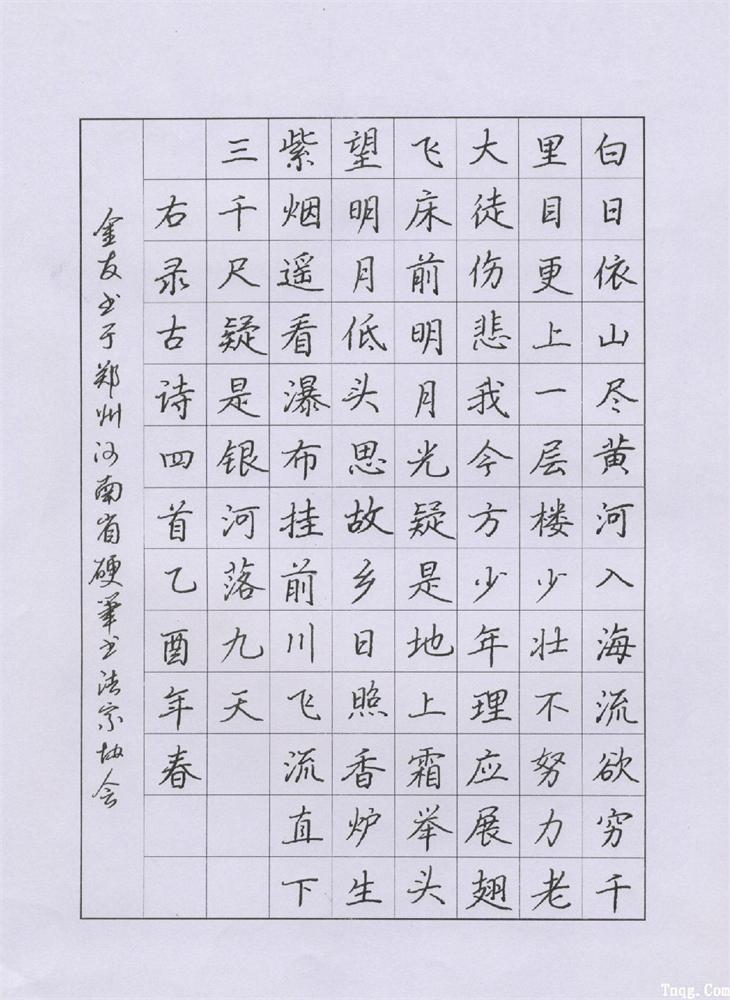 白日依山尽黄河入海流欲穷千
里目更上一层楼少壮不努力老
大徒伤悲我今方少年理应展翅
飞床前明月光疑是地上霜举头
望明月低头思故乡日照香炉生
紫烟遥看瀑布挂前川飞流直下
三千尺疑是银河落九天
右录古诗四首乙酉年春
金友书于郑州河南省硬笔书法家协会
Tnqg.Com